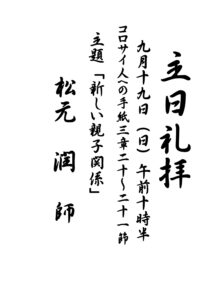 主日礼拝
九月十九日（日）午前十時半
コロサイ人への手紙三章二十～二十一節
主題「新しい親子関係」
松元　潤　師